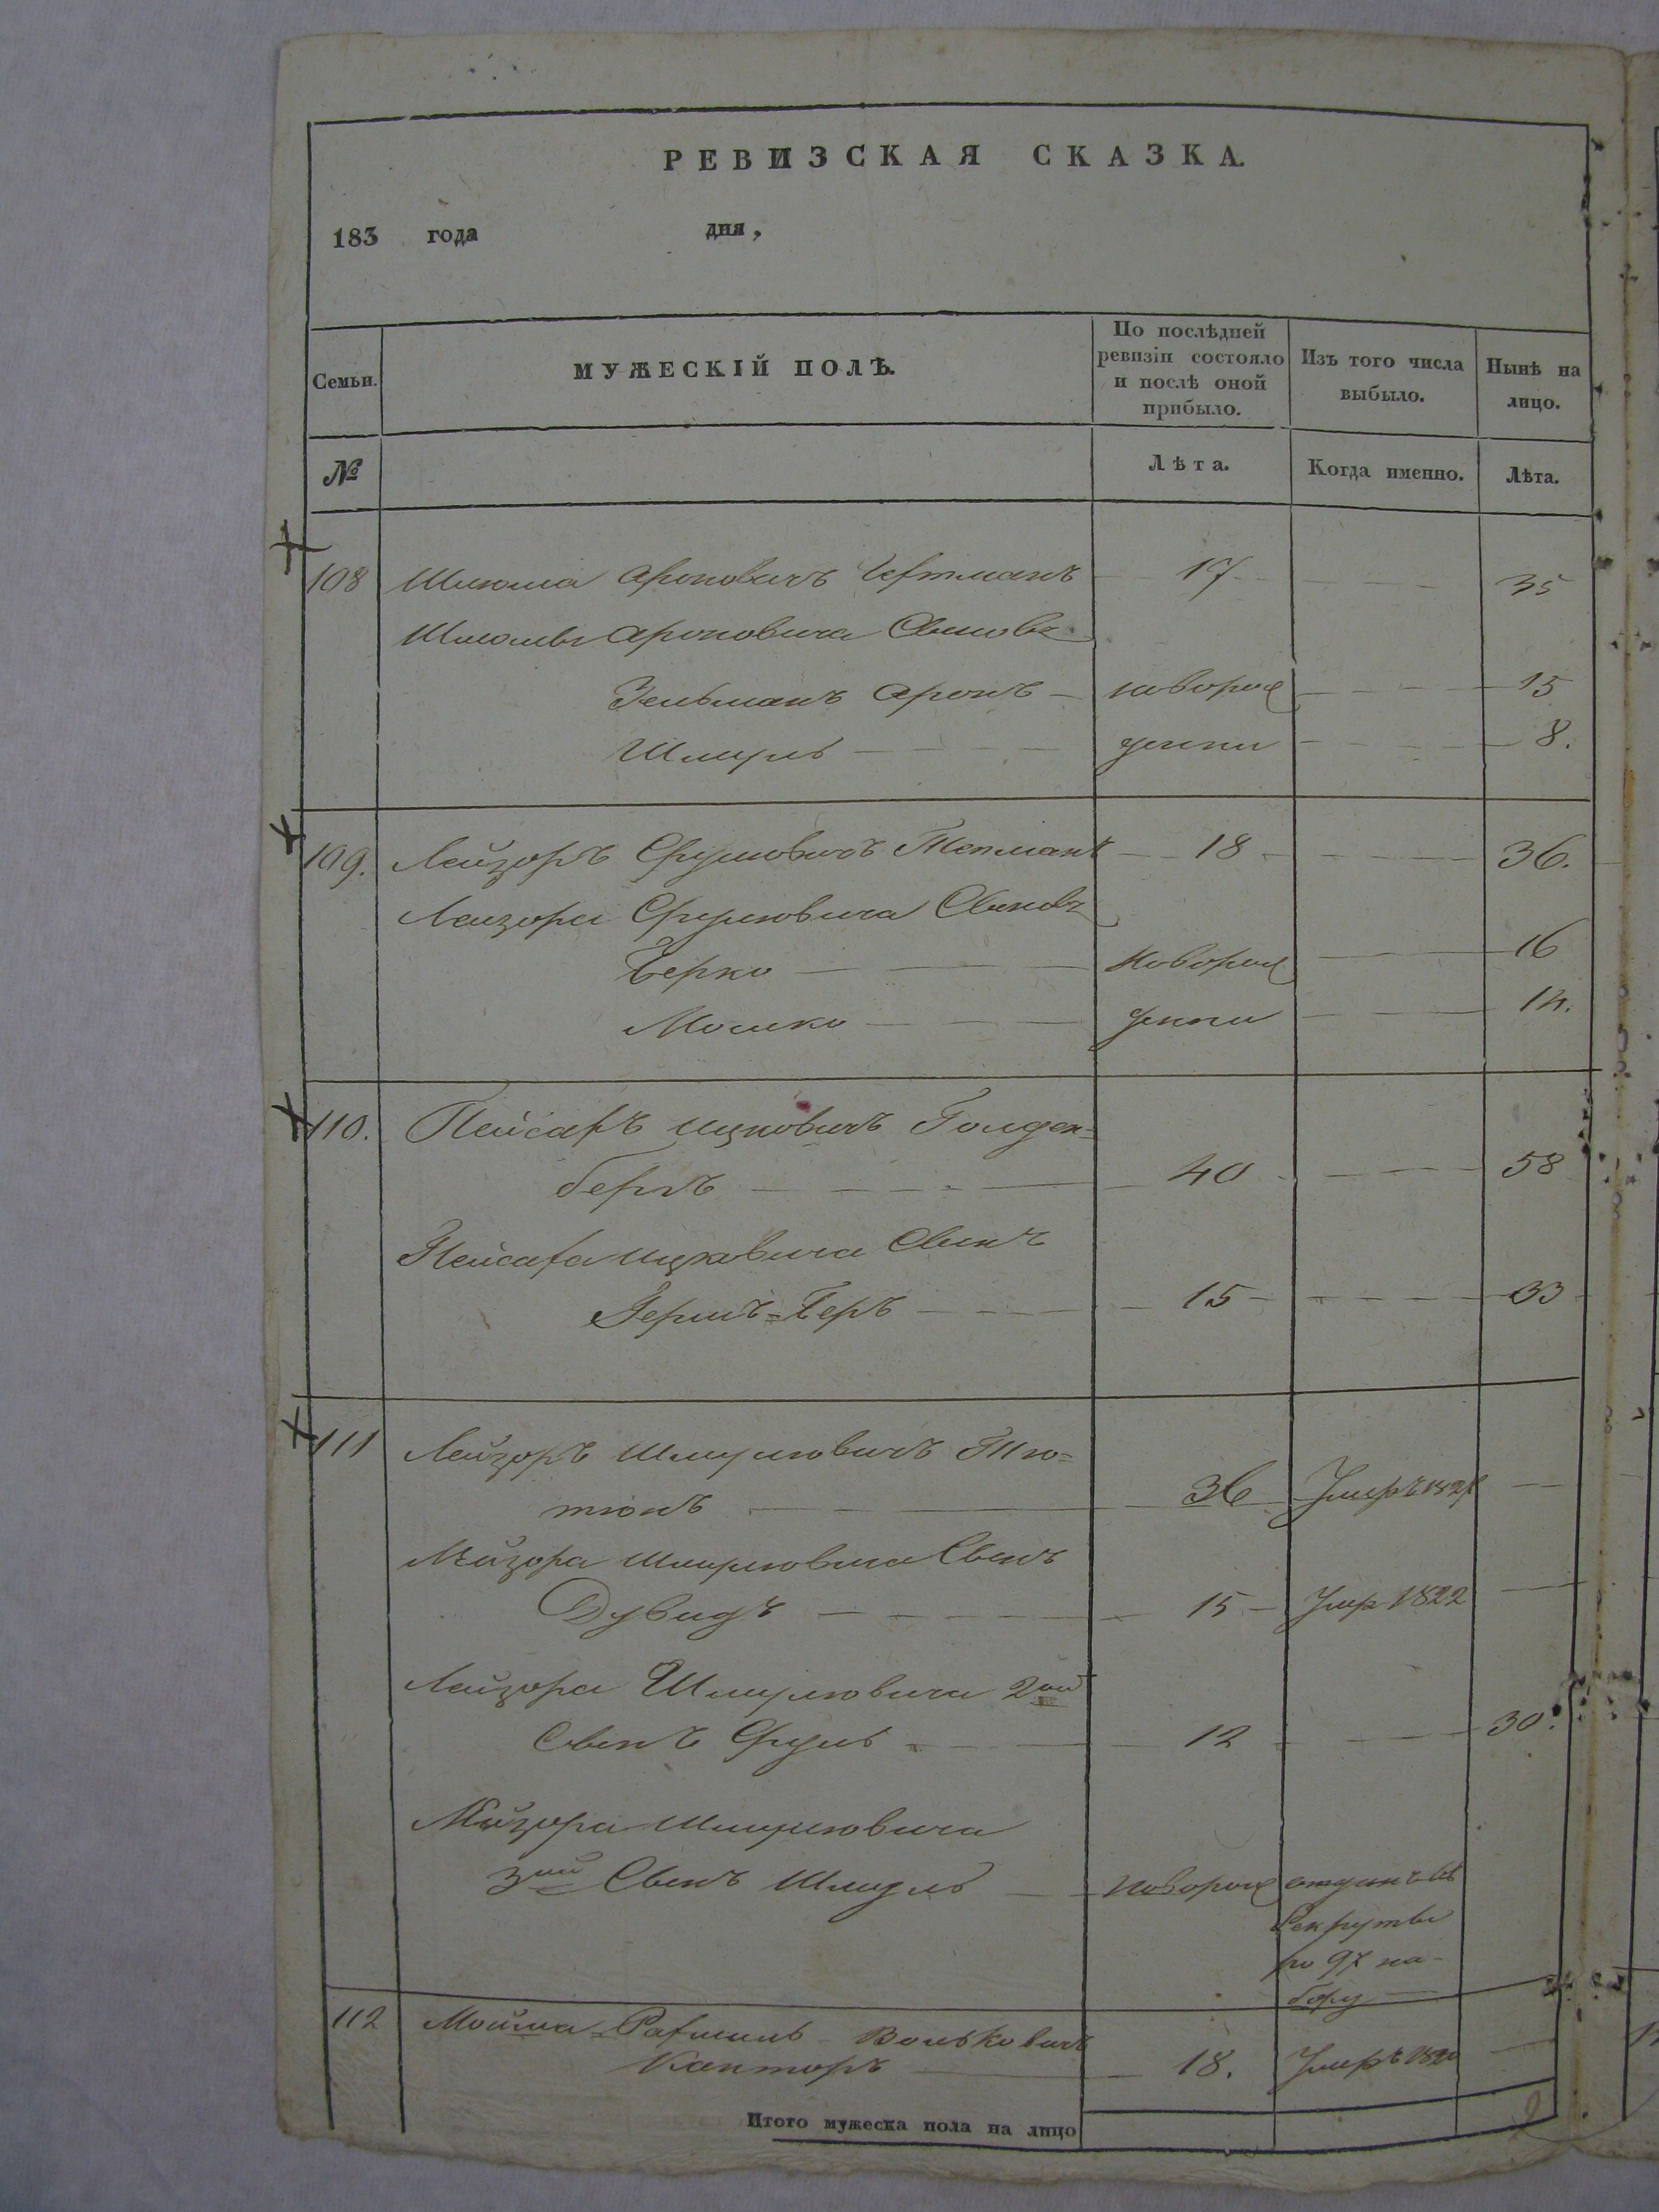 РЕВИЗСКАЯ СКАЗКА.
183 года дня,
Семьи. МУЖЕСКІЙ ПОЛЪ. По послѣдней ревизіи состояло и послѣ оной прибыло. Изъ того числа выбыло. Нынѣ на лицо.
№ Лѣта. Когда именно. Лѣта.
108 Шлюма Ароновичъ 17 35
Шлюмы Ароновича Сыновья
Зельманъ Аронъ новорож 15
Шмуль денни 8.
109. Лейзоръ Сруловичъ 18 36.
Лейзора Сруловича Сынов
Берко новорож 16
Мошко денни
110. Пейсахъ Ицковичъ Голден=
бергъ 40 58
Пейсаха Ицковича Сынъ
Герш-Беръ 15 33
111 Лейзоръ Шмулiовичъ Тю=
тюнъ 36 Умеръ
Лейзора Шмулiовича Сынъ
Дувидъ 15 Умр 1822
Лейзора Шмулiовича 2ой
Сынъ Сруль 12 30.
Лейзора Шмулiовича
3ий Сынъ Шмуль новорож отданъ въ
Рекруты
по 97 на-
бору
112 Рахмиль Вольковичъ
Канторъ 18. Умеръ
Итого мужеска пола на лицо